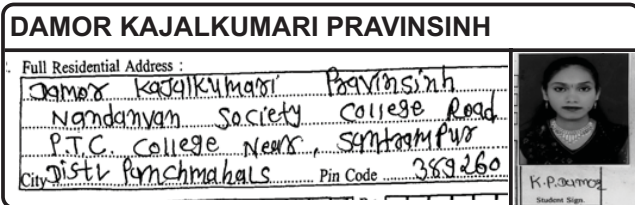 DAMOR KAJALKUMARI PRAVINSINH
Full Residential Address :
Damor Kajalkumari Pravinsinh
Nandanvan Society College Road
P.T.C. College Near, Santrampur
City Distv Panchmahals Pin Code 389260
K.P.Damor
Student Sign.